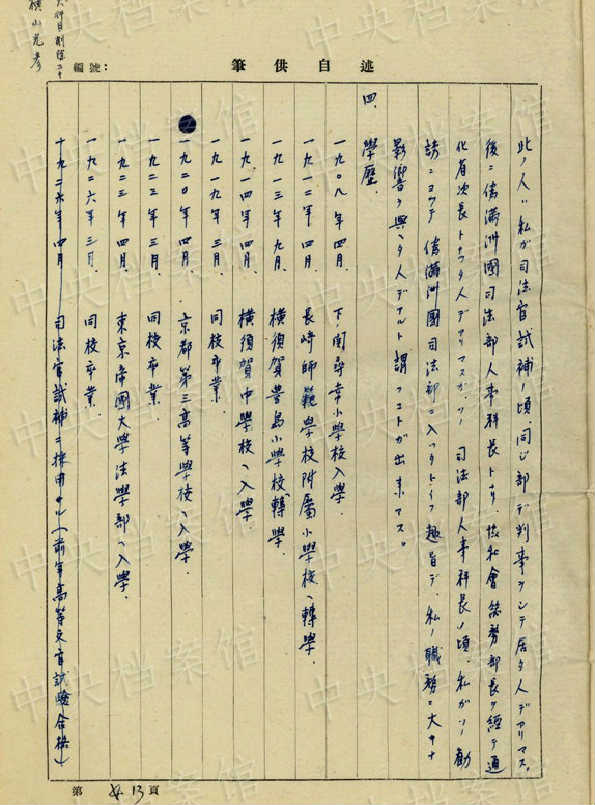 編號：
述自供筆
此ノ人ハ私ガ司法官試補ノ頃、同ジ部デ判事ヲシテ居タ人デアリマス。
後ニ偽滿洲國司法部人事科長トナリ、協和會總務部長ヲ經テ通
化省次長トナッタ人デアリマスガ、ソノ司法部人事科長ノ頃、私ガソノ勸
誘ニヨッテ偽滿洲國司法部ニ入ッタトイフ趣旨デ、私ノ職務ニ大キナ
影響ヲ與ヘタ人デアルト謂フコトガ出來マス。
四、學歷、
一九〇八年四月、下ノ關尋常小學校入學、
一九一二年四月、長崎師範學校附屬小學校ヘ轉學、
一九一三年九月、橫須賀豊島小學校ヘ轉學、
一九一四年四月、橫須賀中學校ヘ入學、
一九一九年三月、同校卒業、
一九二〇年四月、京都第三高等學校ヘ入學、
一九二三年三月、同校卒業、
一九二三年四月、東京帝國大學法學部ヘ入學、
一九二六年三月、同校卒業、
一九二六年四月 司法官試補ニ採用サル（前年高等文官試驗合格）
第 13 頁
中央档案馆